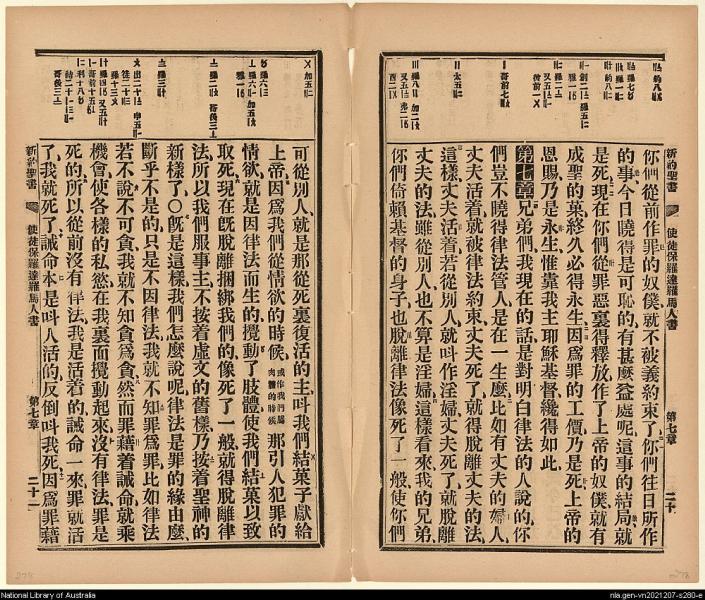 新約聖書
使徒保羅達羅馬人書
第七章
二十
你們從前作罪的奴僕就不被義約束了你們往日所作
的事今日曉得是可恥的有甚麼益處呢這事的結局就
是死現在你們從罪惡裏得釋放作了上帝的奴僕就有
成聖的菓終久必得永生因爲罪的工價乃是死上帝的
恩賜乃是永生惟靠我主耶穌基督纔得如此
第七章兄弟們我現在的話是對明白律法的人說的你
們豈不曉得律法管人是在一生麼比如有丈夫的婦人
丈夫活着就被律法約束丈夫死了就得脫離丈夫的法
這樣丈夫活着若從別人就呌作淫婦丈夫死了就脫離
丈夫的法雖從別人也不算是淫婦這樣看來我的兄弟
你們倚賴基督的身子也脫離律法像死了一般使你們
可從別人就是那從死裏復活的主呌我們結菓子獻給
上帝因爲我們從情欲的時候或作我們屬肉體的時候那引人犯罪的
情欲就是因律法而生的攪動了肢體使我們結菓以致
取死現在旣脫離捆綁我們的像死了一般就得脫離律
法所以我們服事主不按着虛文的舊樣乃按着聖神的
新樣了○旣是這樣我們怎麼說呢律法是罪的緣由麼
斷乎不是的只是不因律法我就不知罪爲罪比如律法
若不說不可貪我就不知貪爲貪然而罪藉着誡命就乘
機會使各樣的私慾在我裏面攪動起來沒有律法罪是
死的所以從前沒有律法我是活着的誡命一來罪就活
了我就死了誡命本是呌人活的反倒呌我死因爲罪藉
新約聖書
使徒保羅達羅馬人書
第七章
二十一
National Library of Australia
nla.gen-vn2021207-s280-e